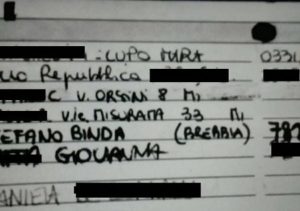 : CUPO MURA 0331
Repubblica
C V. ORSINI 8 MI
V.le MISURATA 33 MI
EFANO BINDA (BREBBIA) 782
GIOVANNA
ANIELA